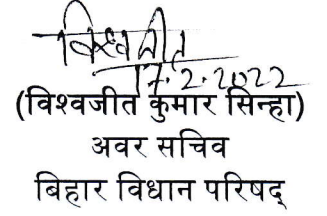 विश्वजीत
17.2.2022
(विश्वजीत कुमार सिन्हा)
अवर सचिव
बिहार विधान परिषद्